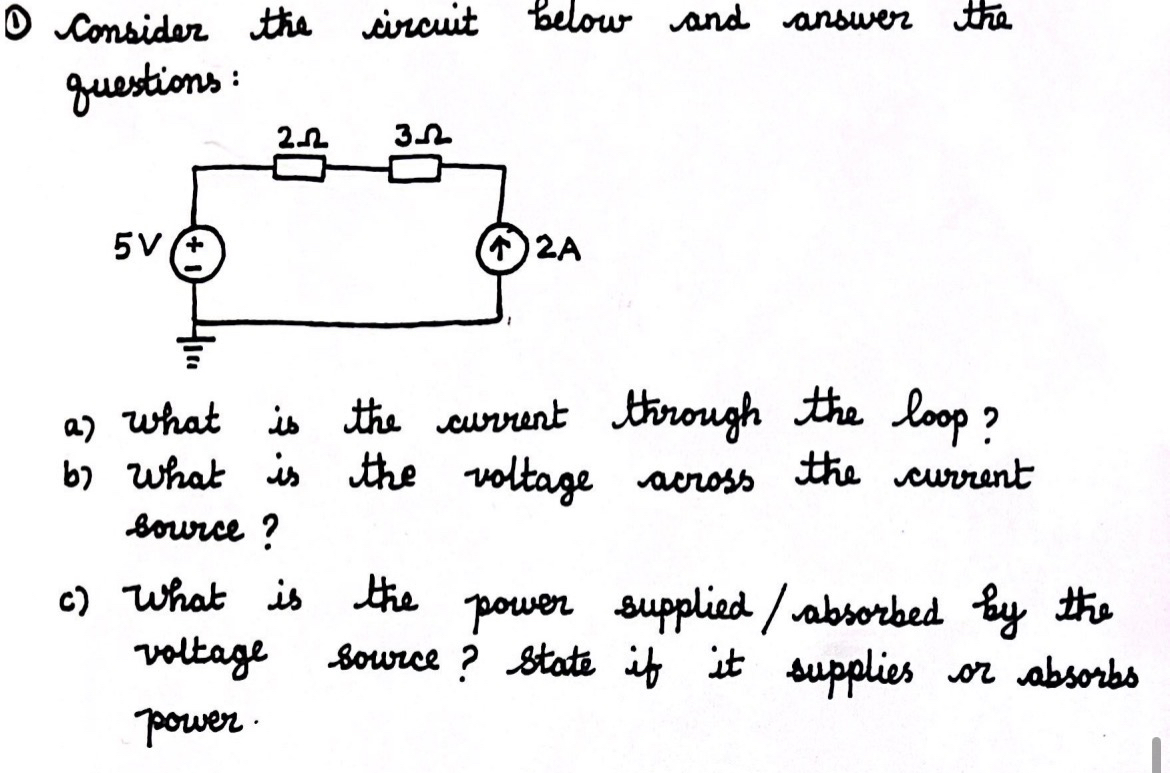 ① Consider the circuit below and answer the
questions :
2Ω 3Ω
5V + − 2A
a) What is the current through the loop ?
b) What is the voltage across the current
source ?
c) What is the power supplied / absorbed by the
voltage source ? State if it supplies or absorbs
power.